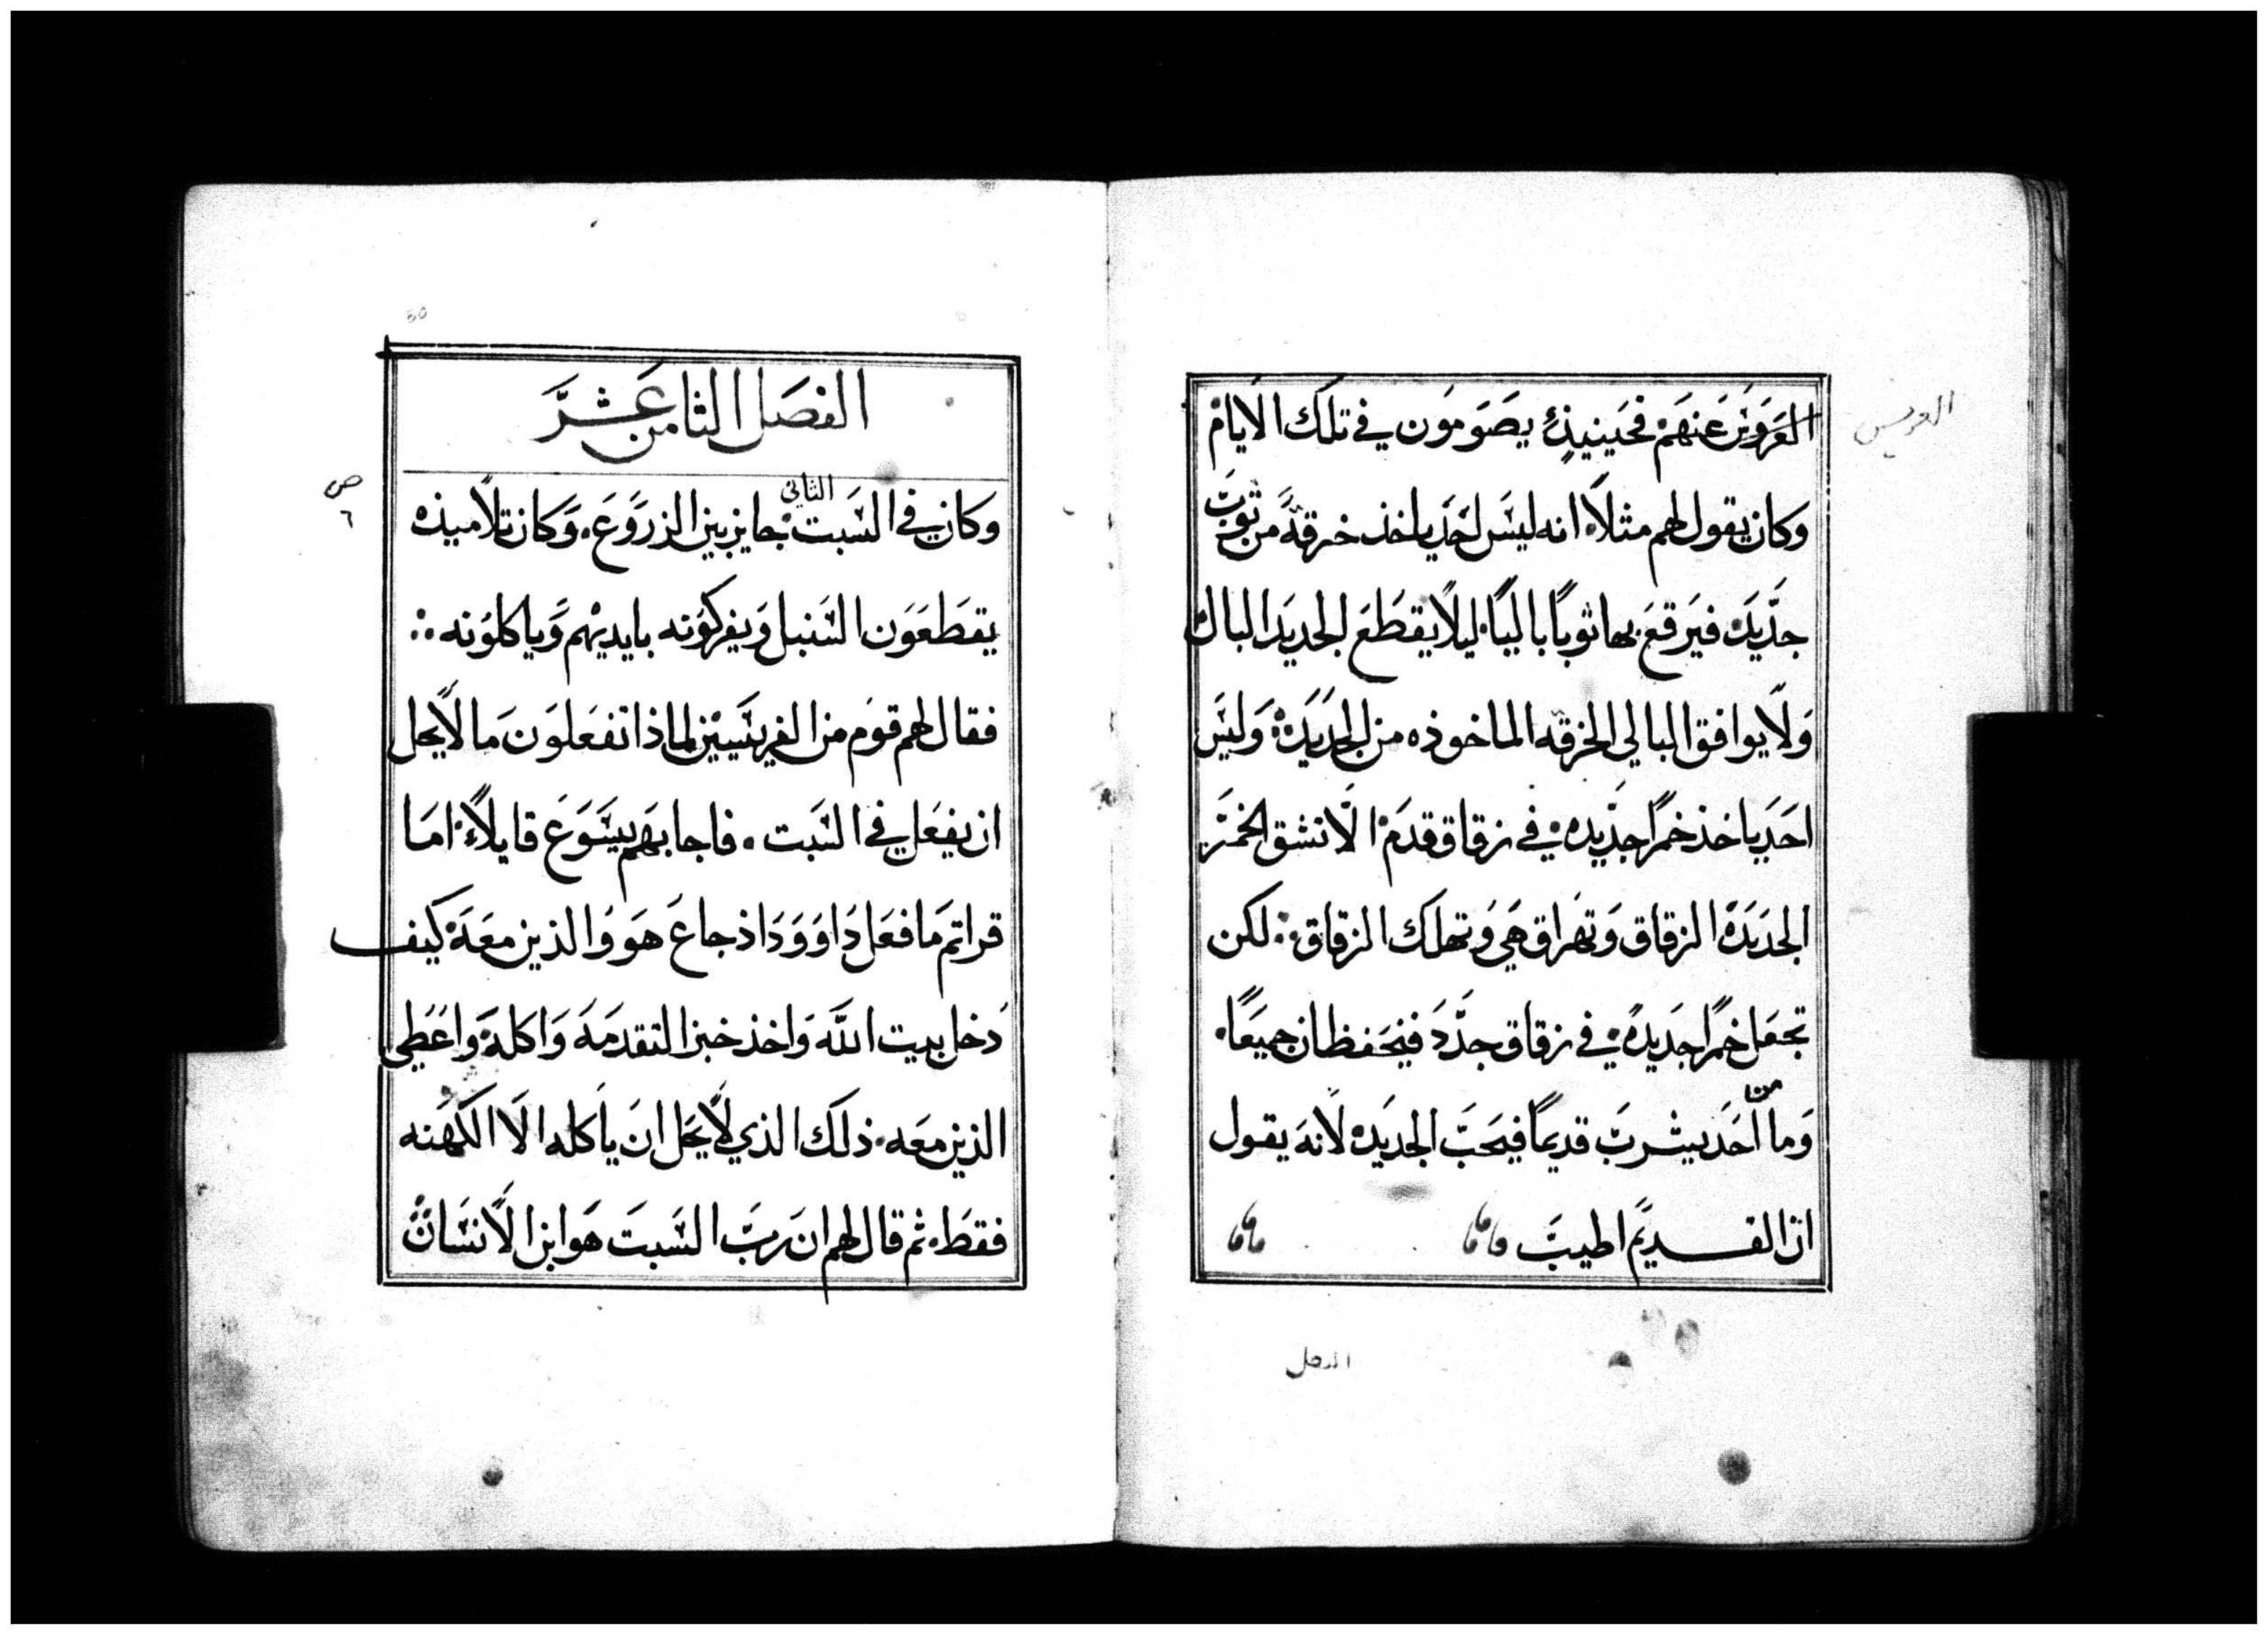 العروس عنهم فحينيذ يصومون في تلك الايام
العريس
وكان يقول لهم مثلاً انه ليس احد ياخذ خرقة من توب
جديد فيرقع بها ثوباً بالياً ليلا يقطع الجديد البال
ولا يوافق البالي الخرقه الماخوذه من الجديدة وليس
احد ياخذ خمراً جديده في زقاق قدم الا تشق الخمر
الجديدة الزقاق وتهراق هي وتهلك الزقاق لكن
تجعل خمراً جديدة في زقاق جدد فيتحفظان جميعاً
وما من احد يشرب قديماً فيحب الجديده لانه يقول
ان القديم اطيب
الفصل
الفصل الثامن عشر
ص
٦
وكان في السبت الثاني جايز بين الزروع وكان تلاميذه
يقطعون السنبل ويفركونه بايديهم وياكلونه
فقال لهم قوم من الفريسيين لماذا تفعلون ما لا يحل
ان يفعل في السبت فاجابهم يسوع قايلاً اما
قراتم ما فعل داوود اذ جاع هو والذين معه كيف
دخل بيت الله واخذ خبز التقدمة واكله واعطى
الذين معه ذلك الذي لا يحل ان ياكله الا الكهنه
فقط ثم قال لهم ان رب السبت هو ابن الانسان